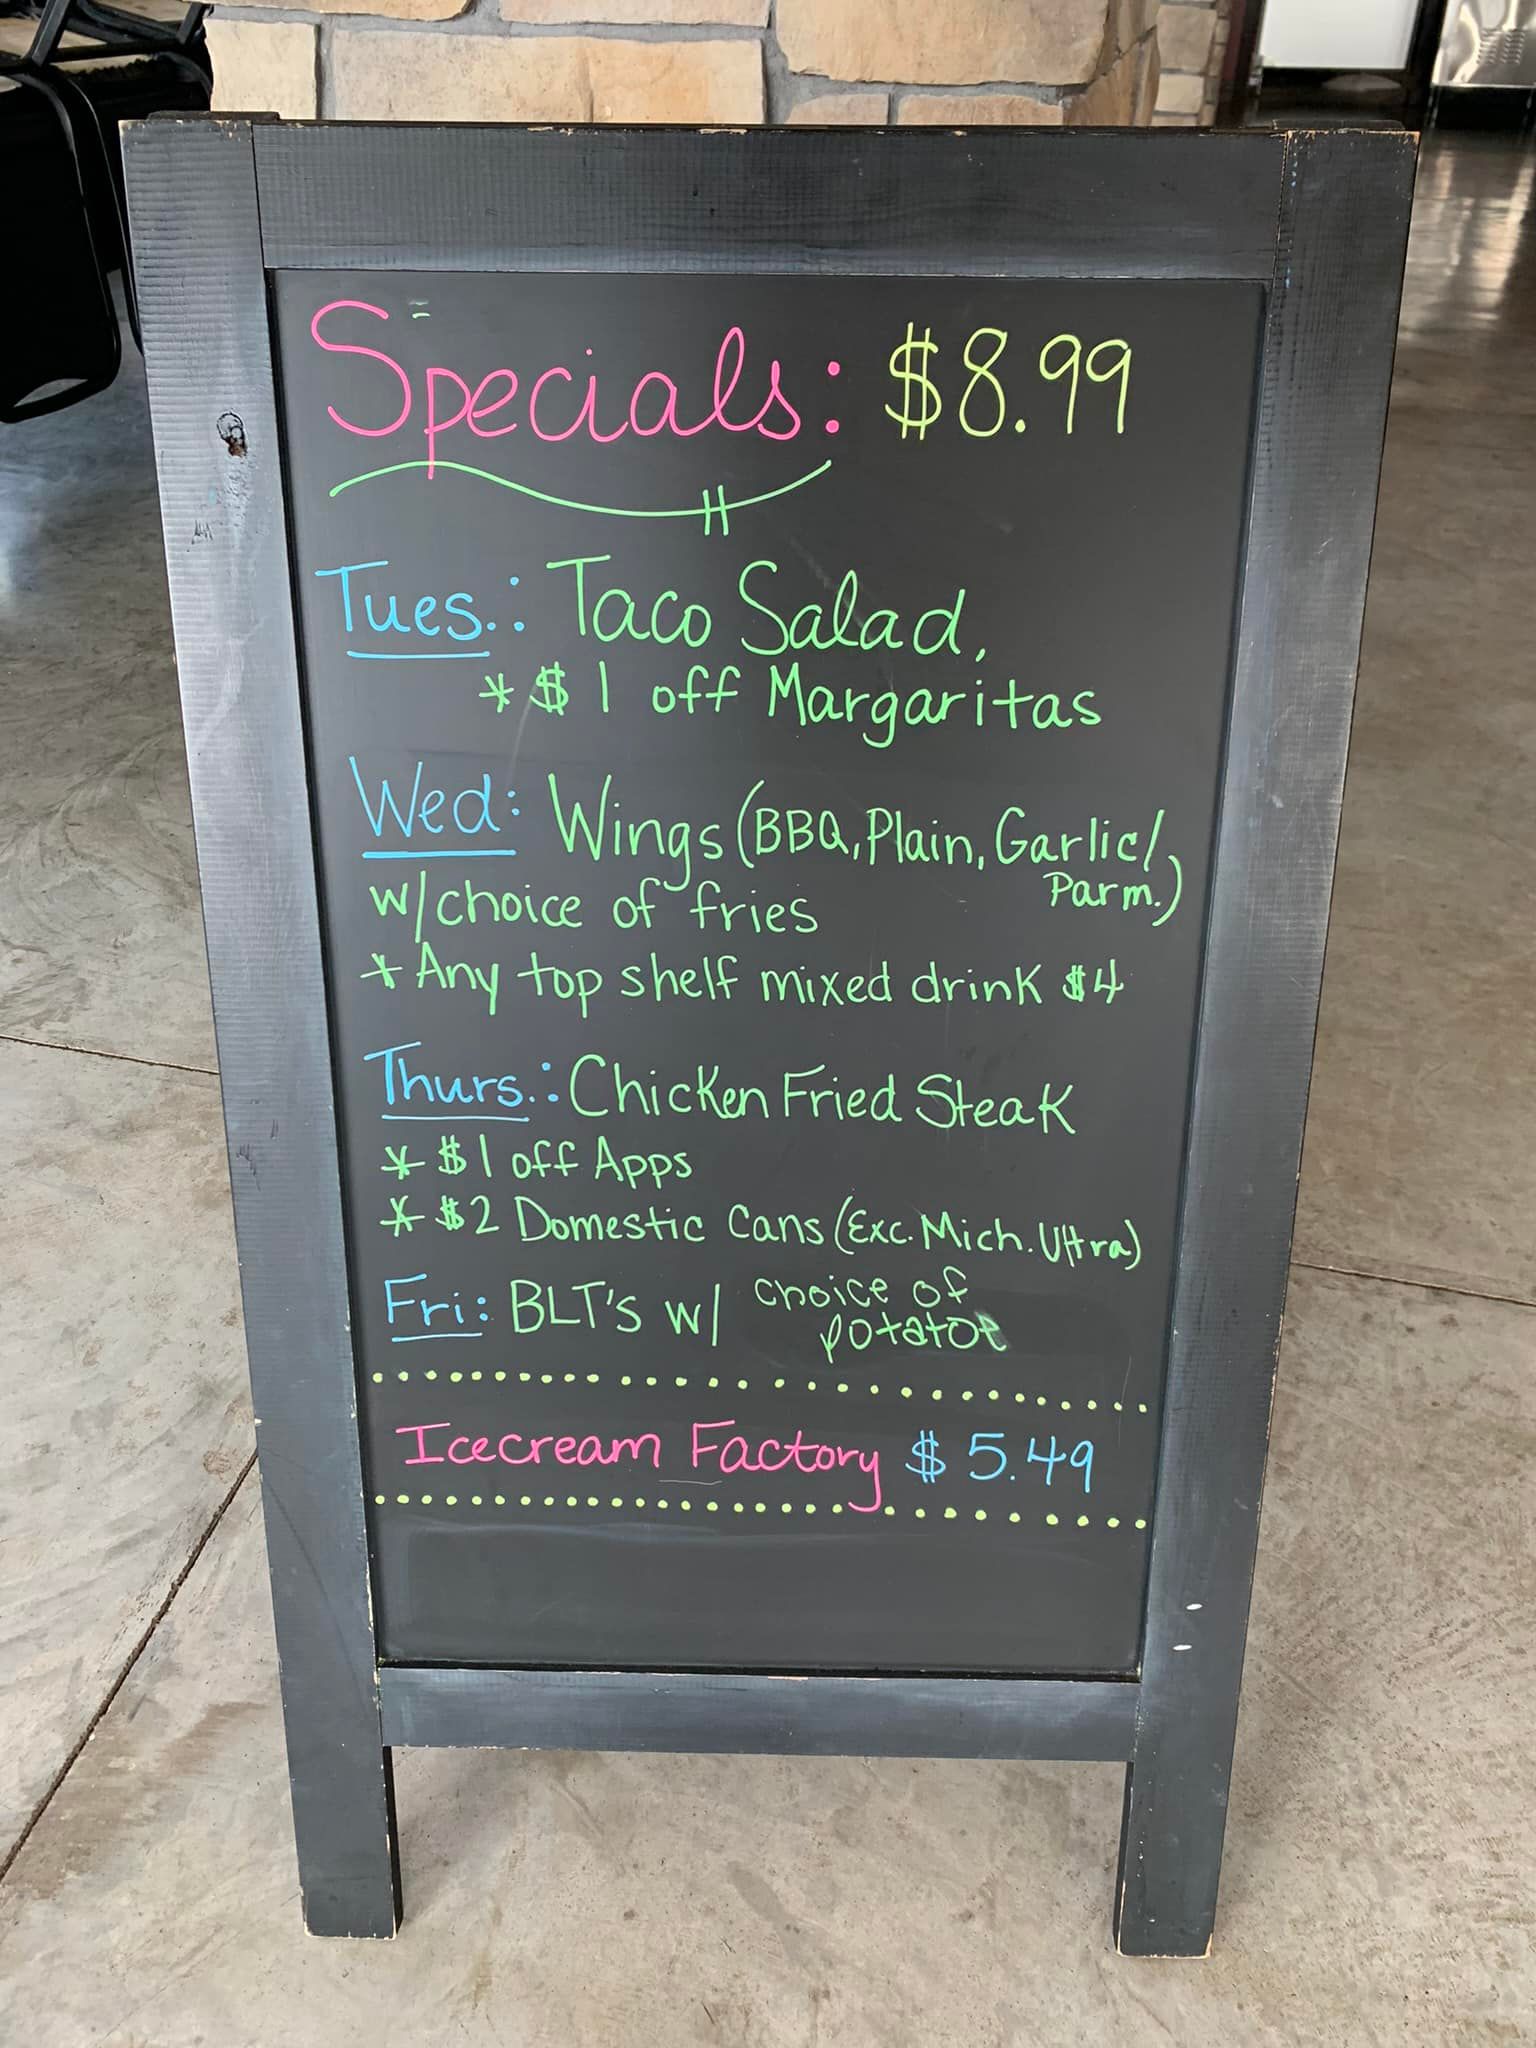 Specials: $8.99
Tues.: Taco Salad,
* $1 off Margaritas
Wed: Wings (BBQ, Plain, Garlic/
Parm.)
w/choice of fries
* Any top shelf mixed drink $4
Thurs.: Chicken Fried Steak
* $1 off Apps
* $2 Domestic Cans (Exc. Mich. Ultra)
Fri: BLT's w/ choice of
potatoe
Icecream Factory $5.49